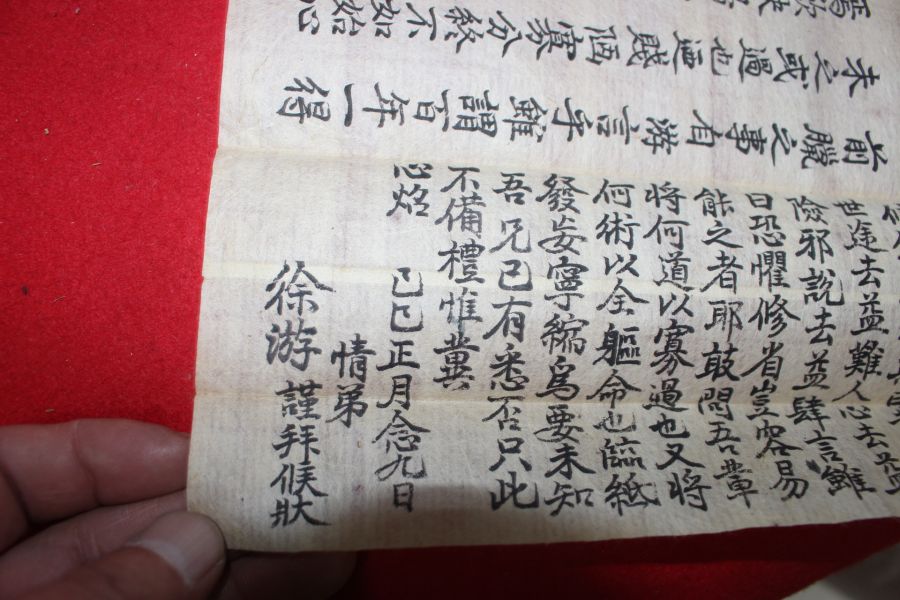 未之或過也迺賤個寡分終不如始心
前臘之事有游言乎雖謂百年一得
世途去益難人心去益
險邪說去益肆言雖
曰恐懼修省豈容易
能之者耶敢問吾輩
將何道以寡過也又將
何術以全軀命也臨紙
發妄寧縮爲要未知
吾兄已有悉否只此
不備禮惟冀
恕炤 己巳正月念九日
情弟
徐游 謹拜候狀